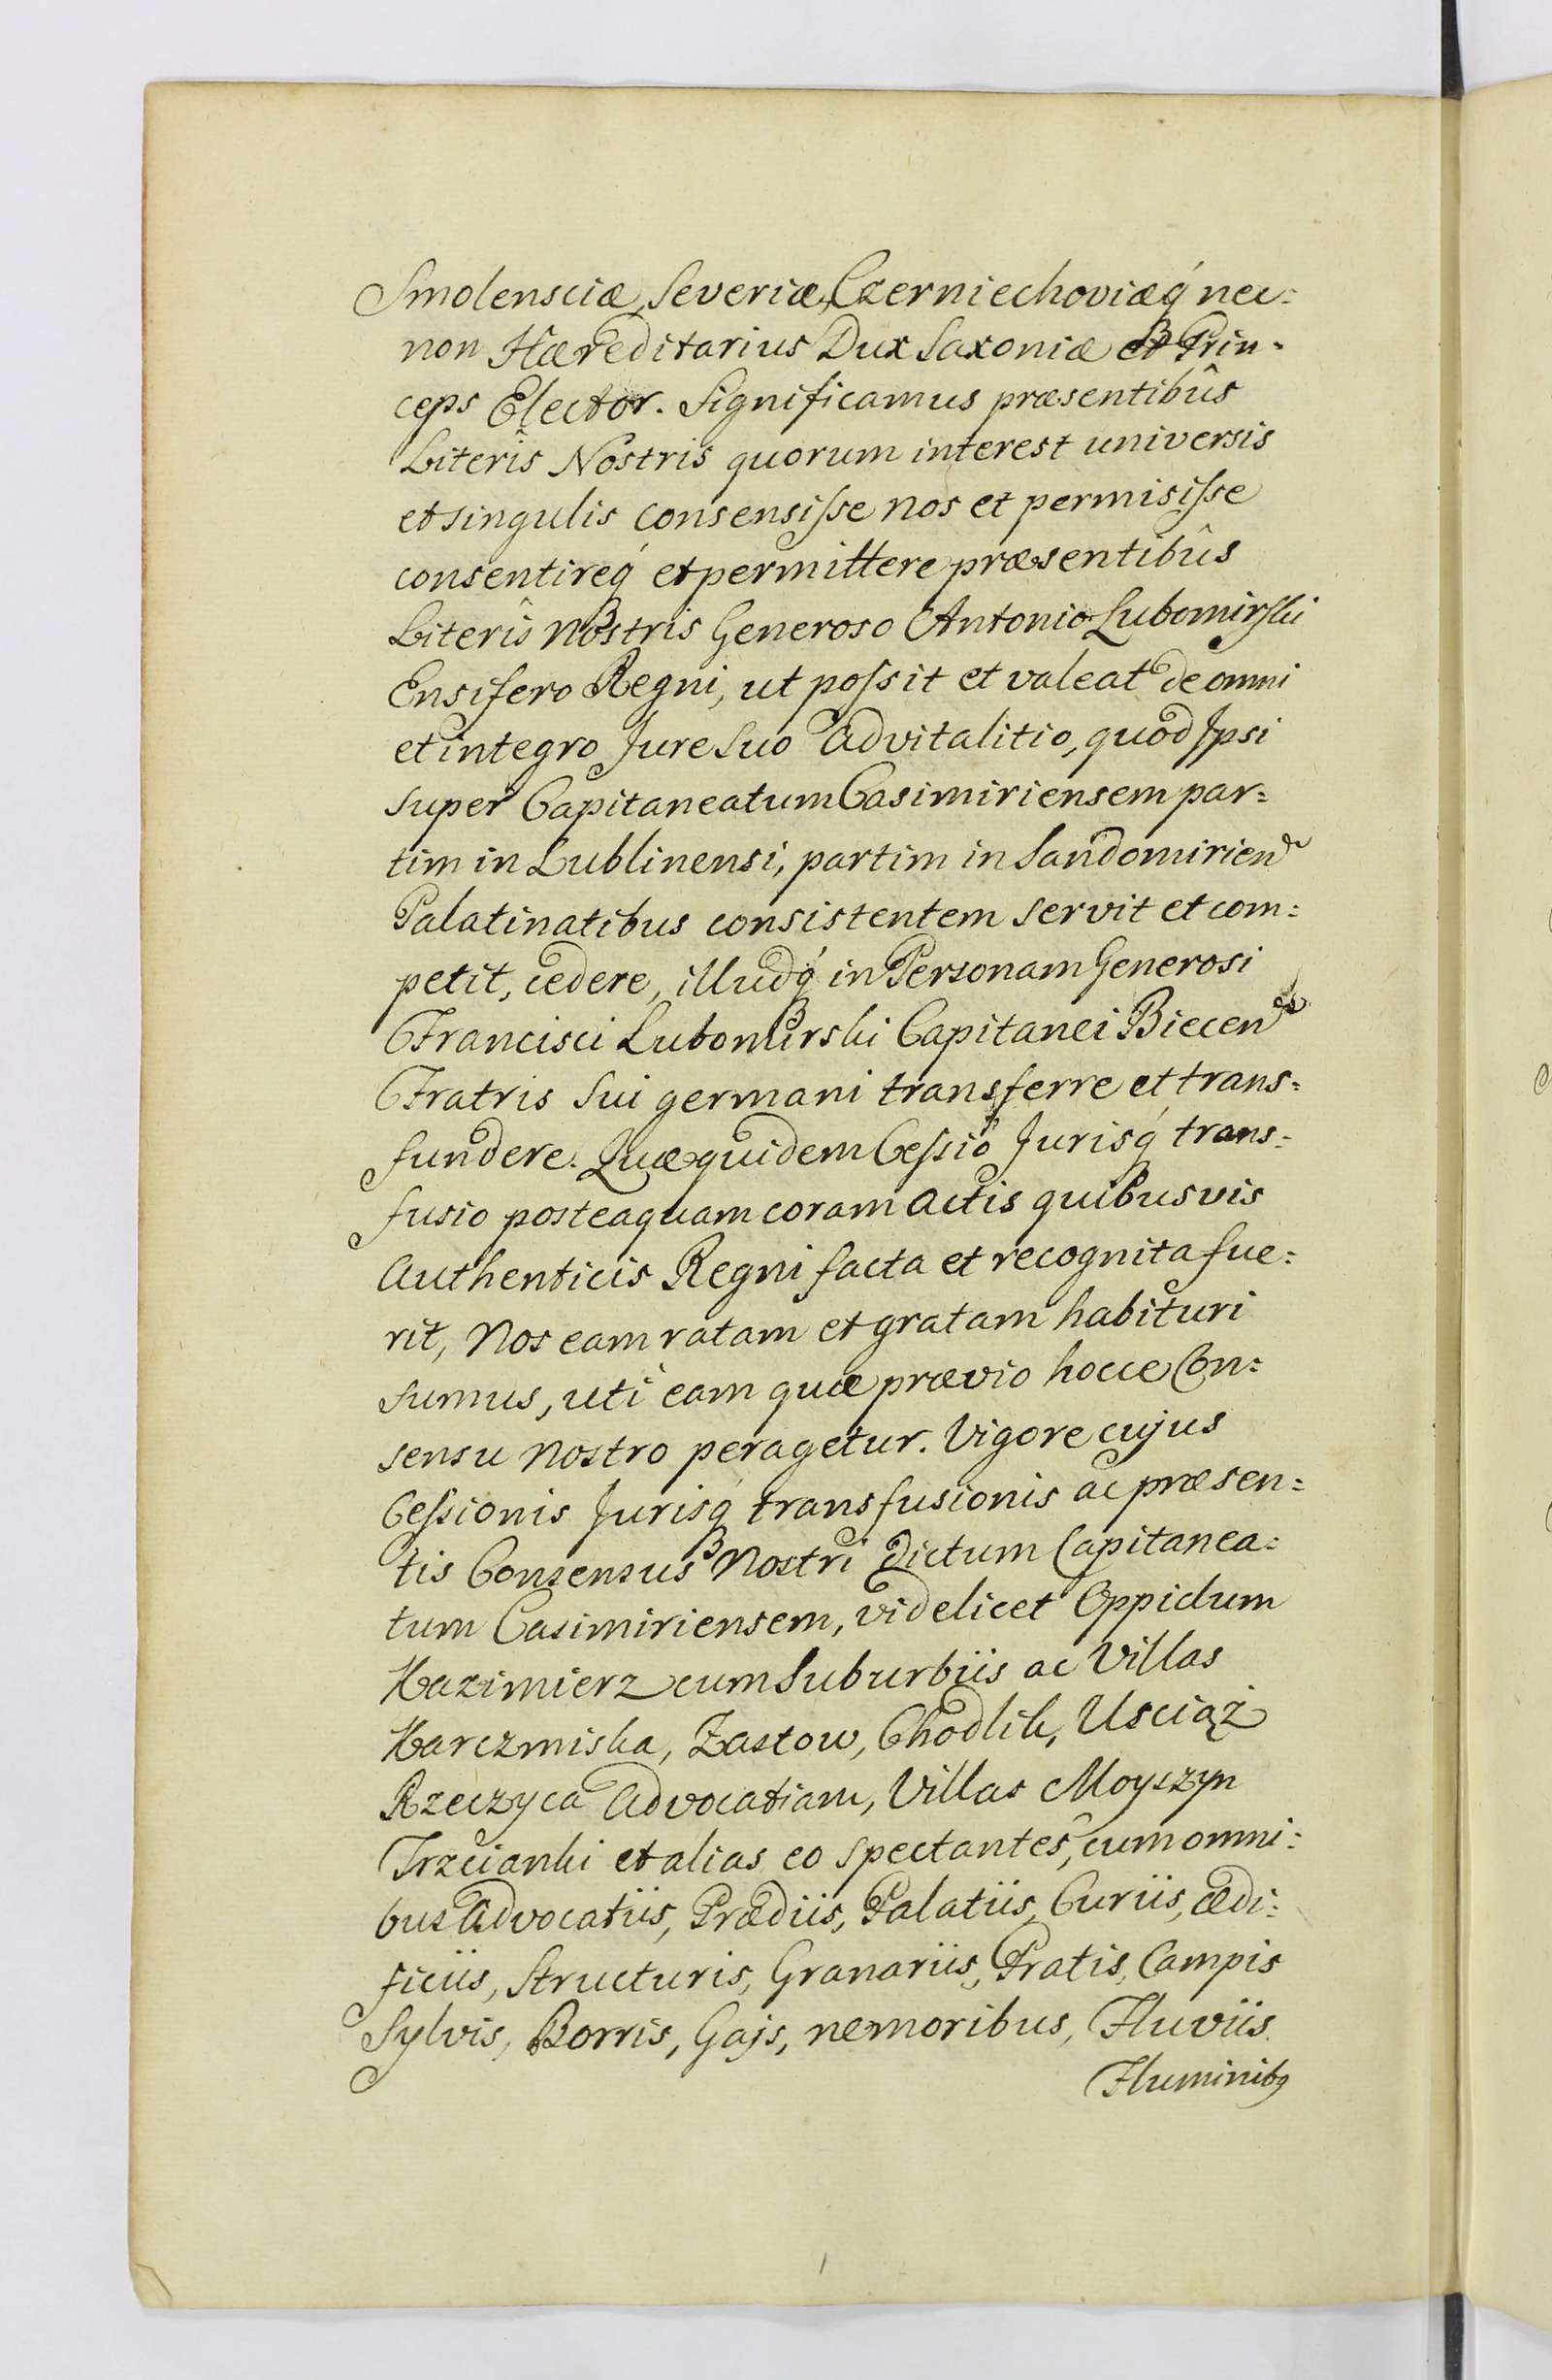 Smolensciæ, Severiæ, Czerniechoviæq́ nec=
non Hæreditarius Dux Saxoniæ et Prin=
ceps Elector. Significamus præsentibûs
Literîs Nostris quorum interest universis
et singulis consensiſse nos et permisiſse
consentireq́ et permittere præsentibûs
Literîs nostris Generoso Antonio Lubomirski
Ensifero Regni, ut poſsit et valeat de omni
et integro Jure suo advitalitio, quod Ipsi
super Capitaneatum Casimiriensem par=
tim in Lublinensi, partim in Sandomirien
Palatinatibus consistentem servit et com=
petit, cedere, illudq́ in Personam Generosi
Francisci Lubomirski Capitanei Biecen
Fratris sui germani transferre et trans=
fundere. Quæ quidem Ceſsio Jurisq́ trans=
fusio posteaquam coram actis quibusvis
Authenticis Regni facta et recognita fue=
rit, Nos eam ratam et gratam habituri
sumus, uti eam quæ prævio hocce Con=
sensu nostro peragetur. Vigore cujus
Ceſsionis Jurisq́ transfusionis ac præsen=
tis Consensus Nostri dictum Capitanea=
tum Casimiriensem, videlicet Oppidum
Kazimierz cum Suburbiis ac Villas
Karczmiska, Zastow, Chodlik, Usciąż
Rzeczyca Advocatiam, Villas Moyszyn
Trzcianki et alias eo spectantes, cum omni=
bus Advocatiis, Prædiis, Palatiis, Curiis, ædi=
ficiis, Structuris, Granariis, Pratis, Campis
Sylvis, Borris, Gajs, nemoribus, Fluviis
Fluminibꝯ